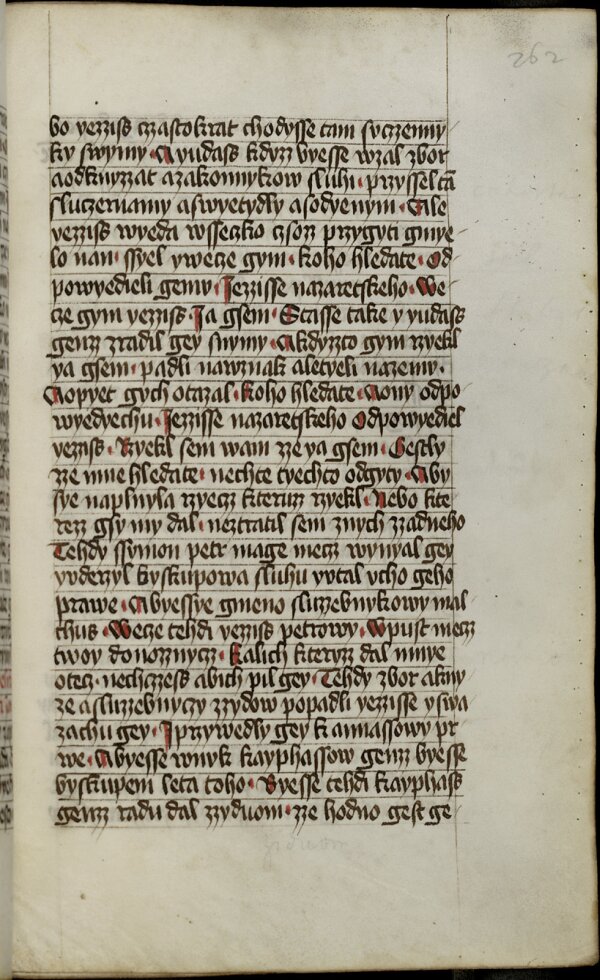 262
bo yezziss czastokrat chodysse tam syczenny
ky swymy · A yudass kdyzz byesse wzal zbor
a od knyzzat a zakonnykow sluhi · przyssel ta
s luczernamy a swyetydly a s odyenym · Ale
yezziss wyeda wsseczko czsoz przygyti gmye
lo nan · ssyel y wecze gym · koho hledate · Od
powyedieli gemu · Jezzisse nazaretskeho · We
cze gym yezziss · Ja gsem · Stasse take y yudass
genz zradil gey s nymy · A kdyzto gym rzyekl
ya gsem · padli nawznak a letyeli na zemy ·
A opyet gych otazal · koho hledate · A ony odpo
wyedyechu · Jezzisse nazaretskeho Odpowyediel
yezziss · Ryekl sem wam zze ya gsem · Gestly
zze mne hledate · nechte tyechto odgyty · Aby
sye naplnyla rzyecz kteruz rzyekl · Nebo kte
rez gsy my dal · neztratil sem z nych zzadneho
Tehdy ssymon petr mage mecz wynyal gey
y vderzyl byskupowa sluhu y vtal vcho geho
prawe · A byessye gmeno sluzebnykowy mal
chus · Wecze tehdi yezziss petrowy · Wpust mecz
twoy do nozznycz · Kalich kteryz dal mnye
otecz · nechczess abich pil gey · Tehdy zbor a kny
ze a sluzzebnyczy zzydow popadli yezzisse y swa
zachu gey · I przywedly gey k annassowy pr
we · A byesse wnyk kayphassow genz byesse
byskupem leta toho · Byesse tehdi kayphass
genz radu dal zzyduom · zze hodno gest ge